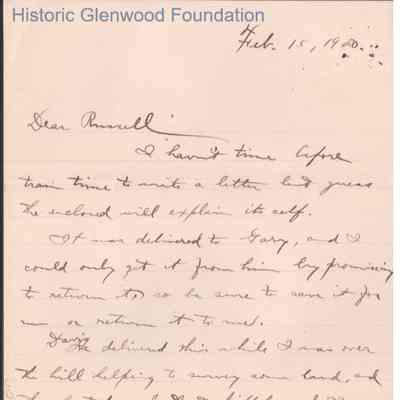 Historic Glenwood Foundation
Feb. 15, 1920.
Dear Russell
I havn't time before
train time to write a letter but guess
the enclosed will explain its self.
It was delivered to Gary, and I
could only get it from him by promising
to return it, so be sure to save it for
me or return it to me.
Davis
he delivered this while I was over
the hill helping to survey some land, and